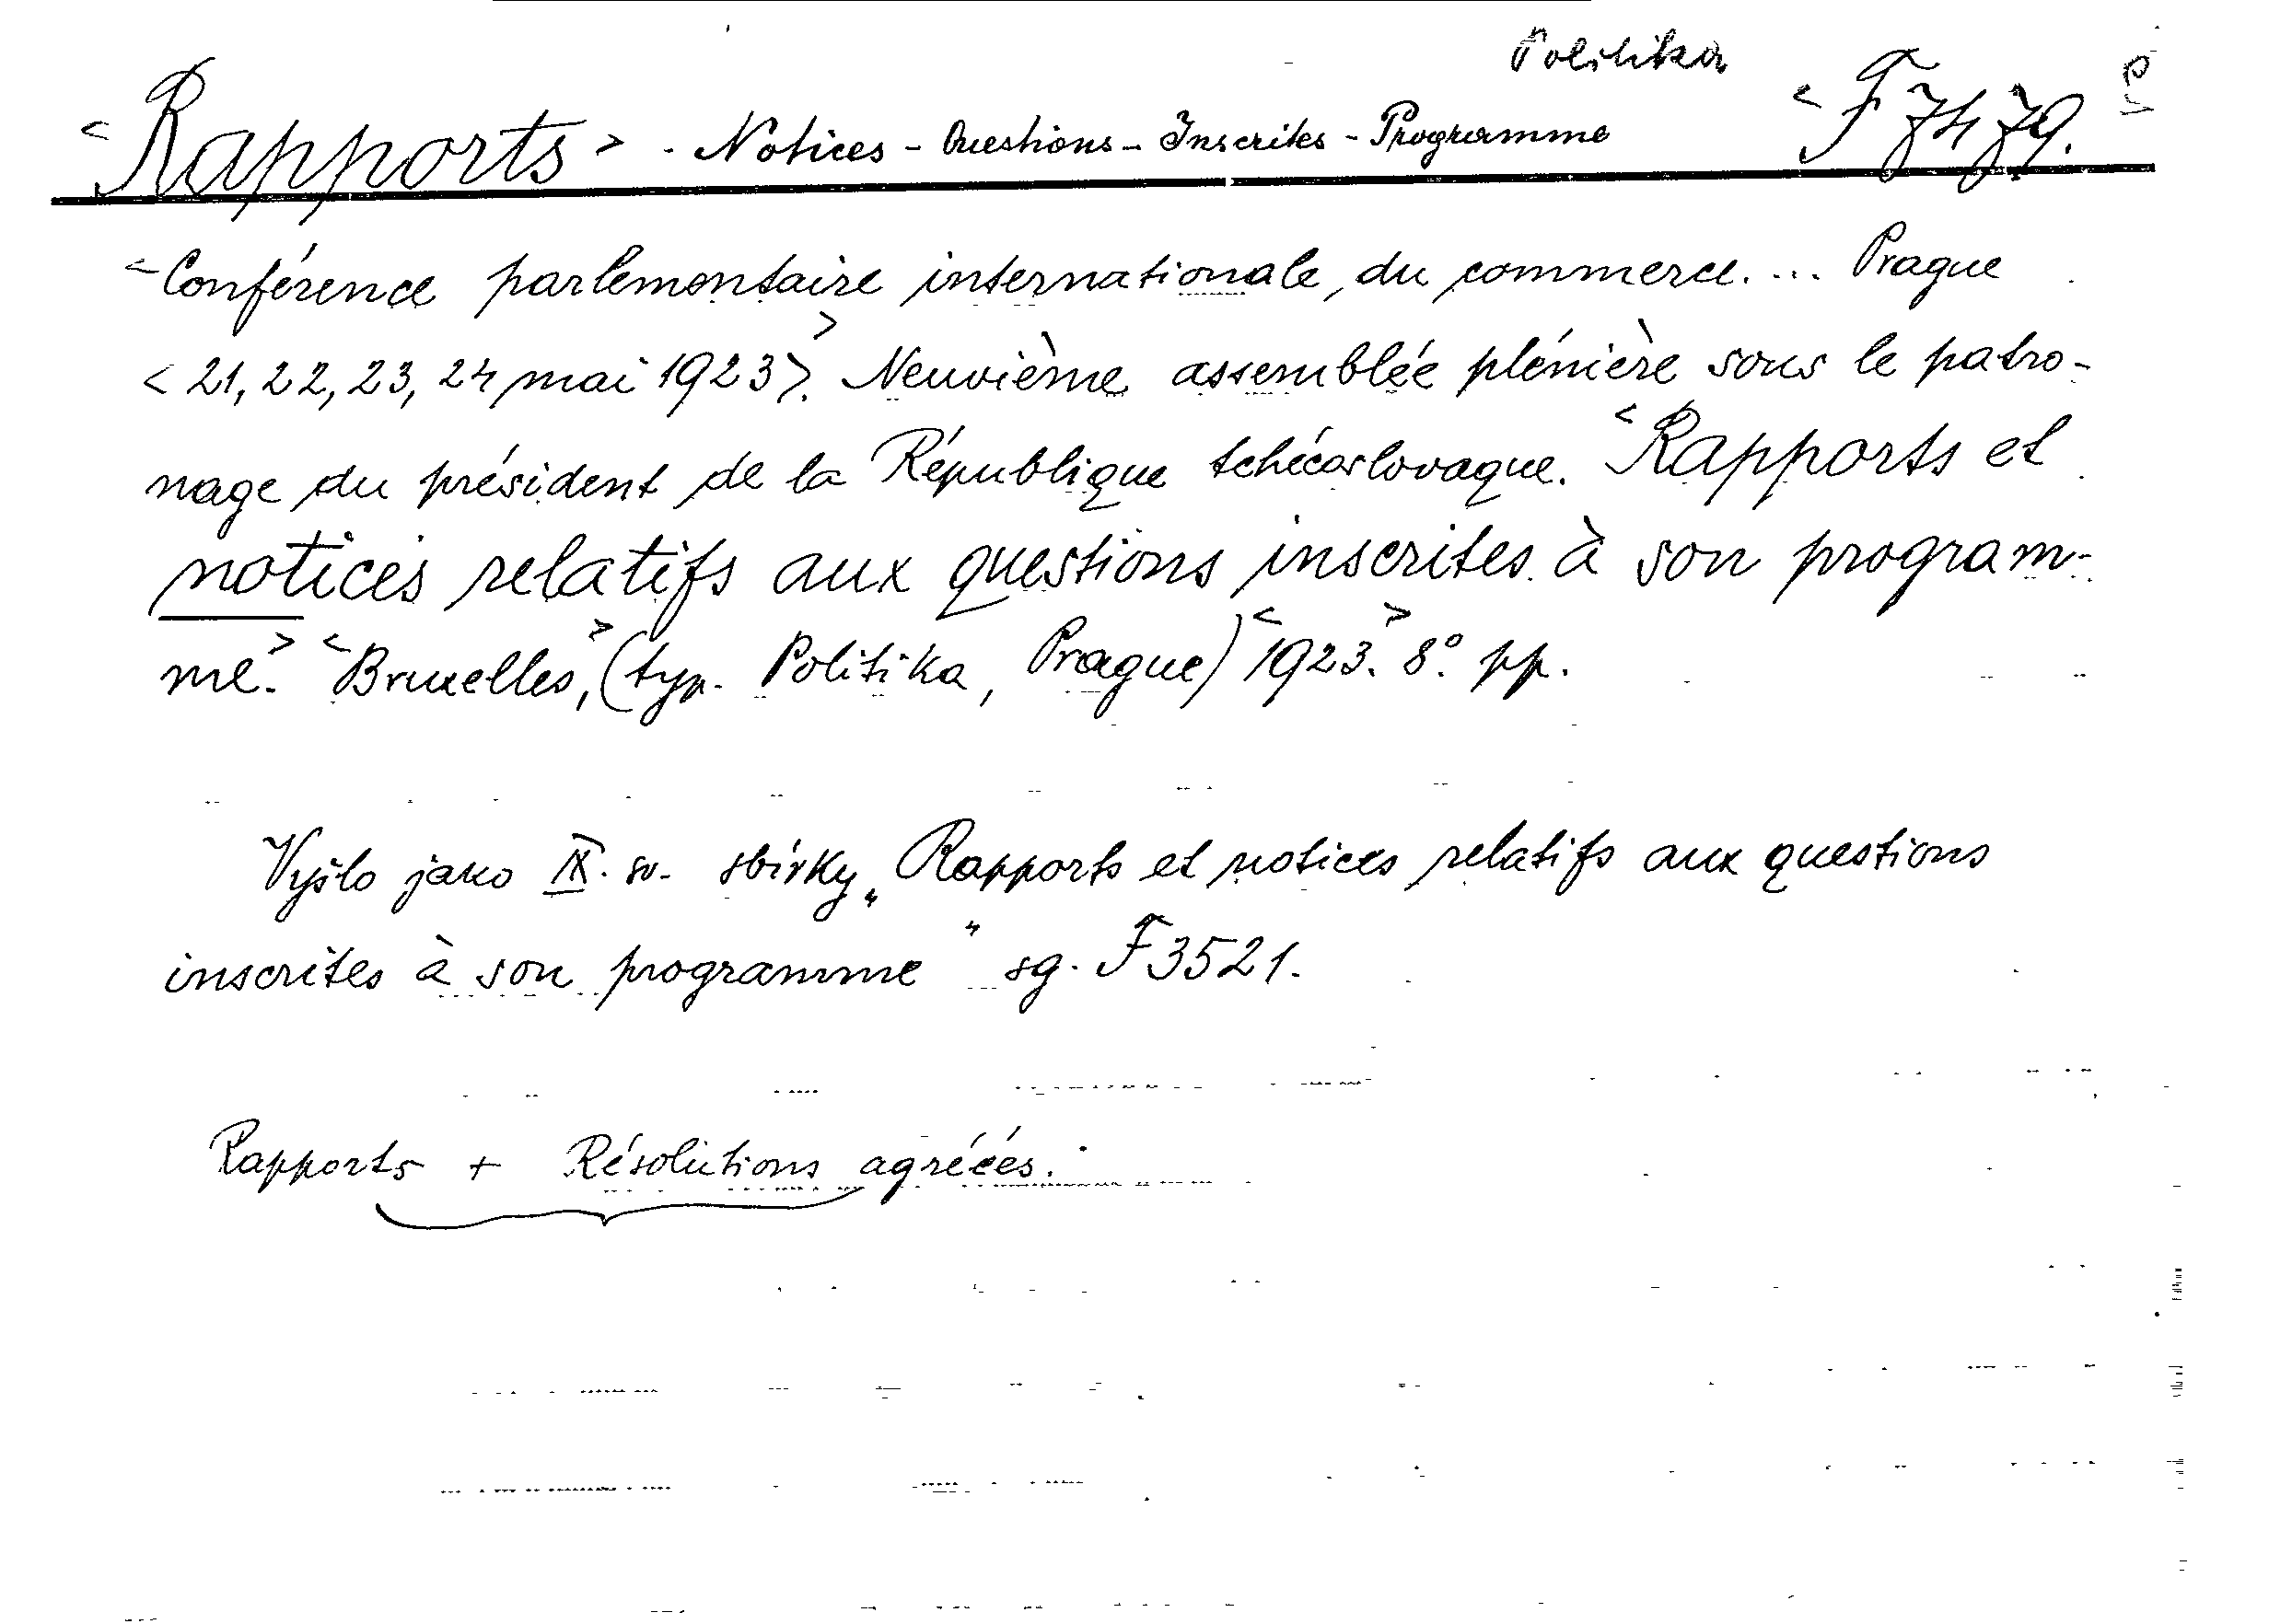 Politika
<Rapports> - Notices - Questions - Inscrites - Programme <F 7479.
<Conférence parlementaire internationale du commerce. ... Prague
<21, 22, 23, 24 mai 1923>.> Neuvième assemblée plénière sous le patro-
nage du président de la République tchécoslovaque. <Rapports et
notices relatifs aux questions inscrites à son program-
me.> <Bruxelles,> (typ. Politika, Prague) <1923.> 8°. pp.
Vyšlo jako IX. sv. sbírky „Rapports et notices relatifs aux questions
inscrites à son programme“ sg. F 3521.
Rapports + Résolutions agréées.